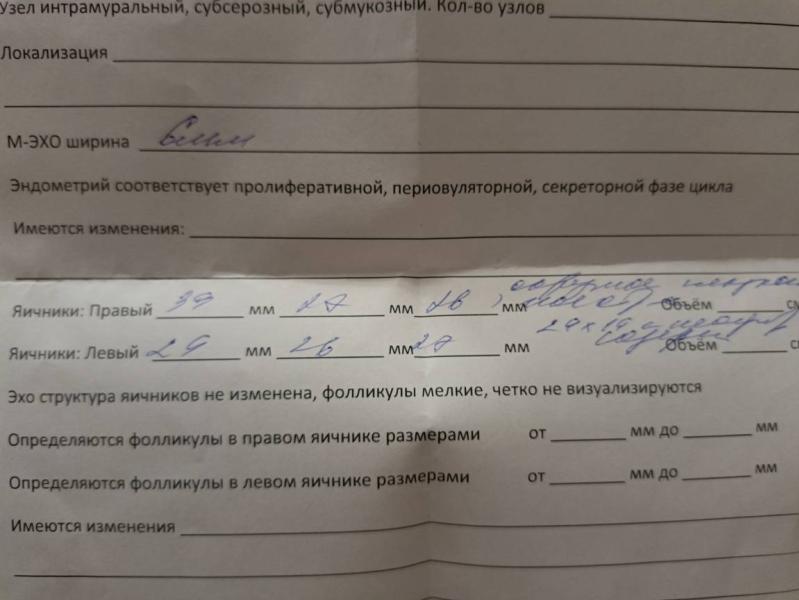 Узел интрамуральный, субсерозный, субмукозный. Кол-во узлов
Локализация
М-ЭХО ширина 6мм
Эндометрий соответствует пролиферативной, периовуляторной, секреторной фазе цикла
Имеются изменения:
Яичники: Правый 39 мм 27 мм 26 мм Объём
Яичники: Левый 29 мм 26 мм 27 мм Объём
Эхо структура яичников не изменена, фолликулы мелкие, четко не визуализируются
Определяются фолликулы в правом яичнике размерами от мм до мм
Определяются фолликулы в левом яичнике размерами от мм до мм
Имеются изменения